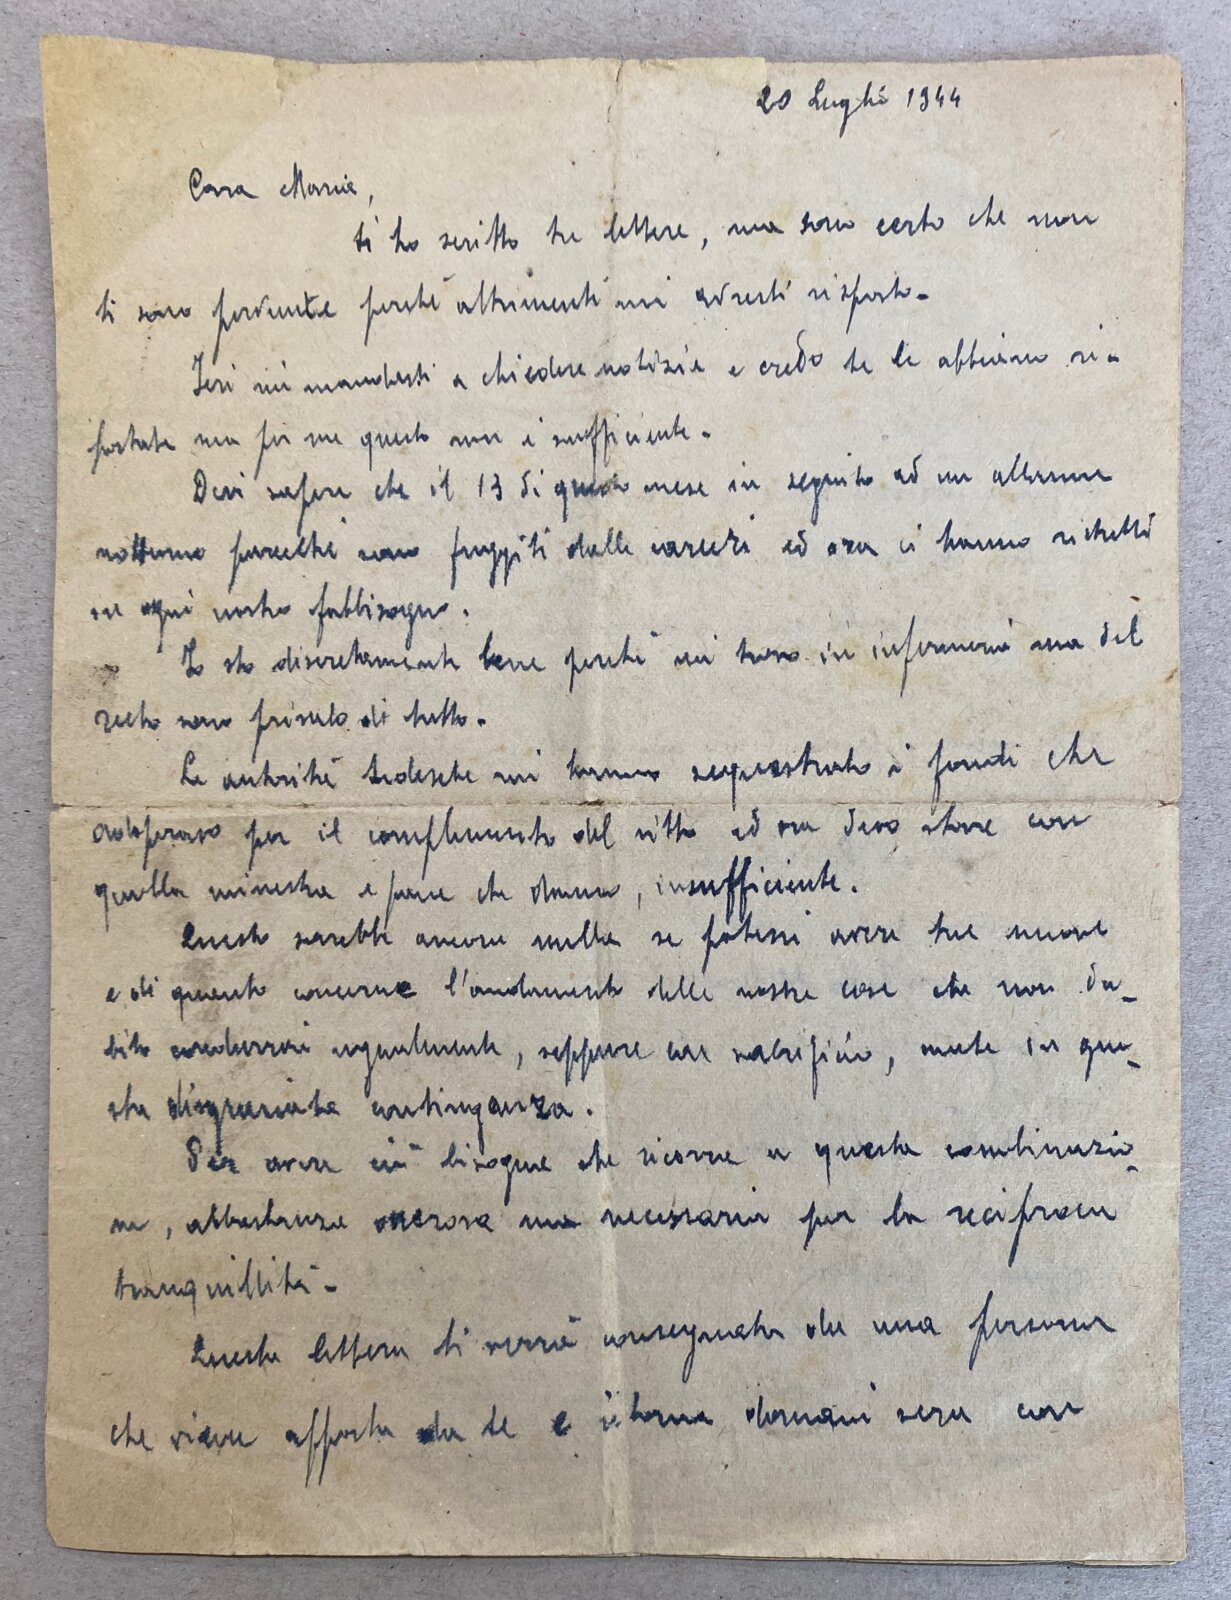 20 Luglio 1944
Cara Maria,
ti ho scritto tre lettere, ma sono certo che non
ti sono pervenute perché altrimenti mi avresti risposto.
Ieri mi mandasti a chiedere notizie e credo te le abbiano ri-
portate ma per me questo non è sufficiente.
Devi sapere che il 13 di questo mese in seguito ad un allarme
notturno parecchi sono fuggiti dalle carceri ed ora ci hanno ristretti
su ogni nostro fabbisogno.
Io sto discretamente bene perché mi trovo in infermeria ma del
resto sono privato di tutto.
Le autorità tedesche mi hanno sequestrato i fondi che
adoperavo per il complemento del vitto ed ora devo stare con
quella minestra e pane che danno, insufficiente.
Questo sarebbe ancora nulla se potessi avere tue nuove
e di quanto concerne l'andamento delle nostre cose che non du-
bito condurrai ugualmente, seppure con sacrificio, anche in que-
sta disgraziata contingenza.
Per avere ciò bisogna che ricorra a questa combinazio-
ne, abbastanza onerosa ma necessaria per la reciproca
tranquillità.
Questa lettera ti verrà consegnata da una persona
che viene apposta da te e ritorna domani sera con